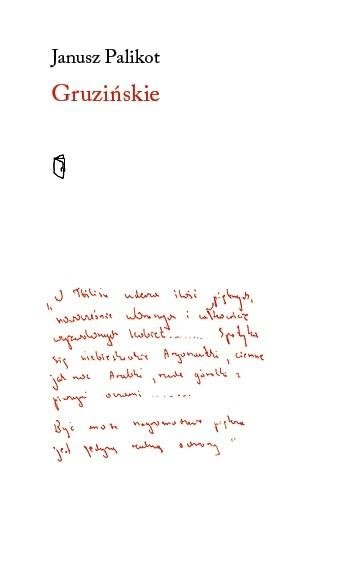 Janusz Palikot
Gruzińskie
"W Tbilisi uderza ilość pięknych,
nowocześnie ubranych i całkowicie
wyzwolonych kobiet........ Spotyka
się niebieskookie Argonautki, ciemne
jak noc Arabki, rude góralki z
piwnymi oczami ........
Być może nagromadzenie piękna
jest jedyną realną ochroną"